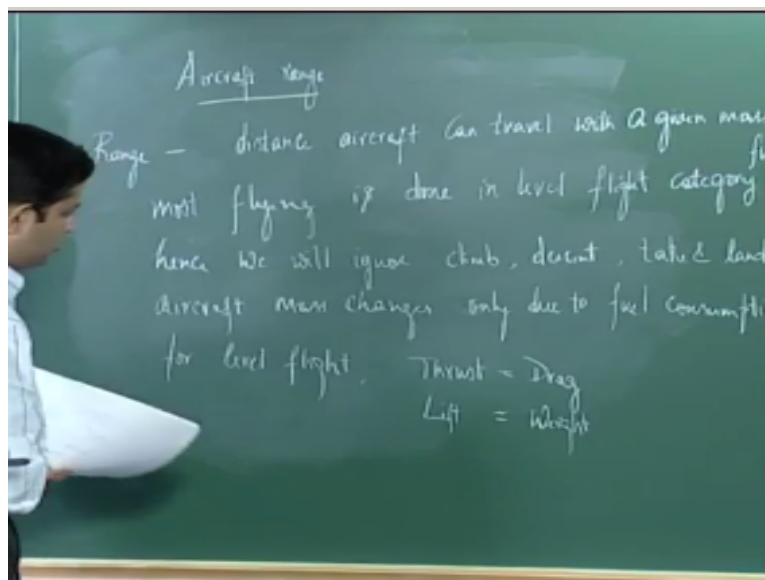 Aircraft range
Range - distance aircraft can travel with a given mass
fu
most flying is done in level flight category
hence we will ignore climb, descent, take & land
aircraft mass changes only due to fuel consumpti
for level flight, Thrust = Drag
Lift = Weight